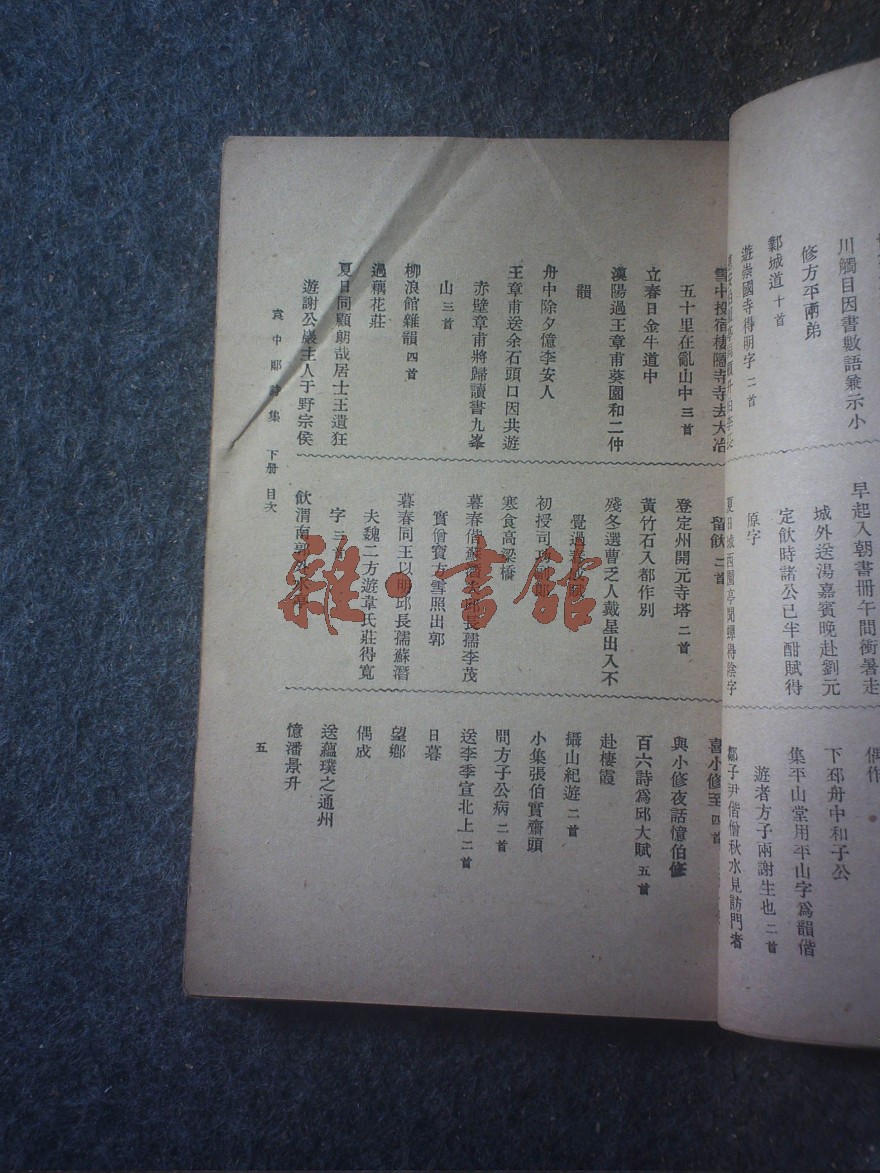 川觸目因書數語兼示小
修方平兩弟
鄴城道 十首
遊崇國寺得明字 二首
早起入朝書冊午間衝暑走
城外送湯嘉賓晚赴劉元
定飲時諸公已半酣賦得
原字
夏日城西園亭聞蟬得陰字
偶作
下邳舟中和子公
集平山堂用平山字爲韻偕
遊者方子兩謝生也 二首
鄒子尹偕僧秋水見訪門者
雪中投宿棲隱寺寺去大冶
五十里在亂山中 三首
立春日金牛道中
漢陽過王章甫葵園和二仲
韻
舟中除夕億李安人
王章甫送余石頭口因共遊
赤壁章甫將歸讀書九峯
山 三首
柳浪館雜韻 四首
過藕花莊
夏日同顧朗哉居士王遺狂
遊謝公巖主人于野宗侯
留飲 二首
登定州開元寺塔 二首
黃竹石入都作別
殘冬選曹乏人戴星出入不
覺過春
初授司
寒食高梁橋
暮春偕蘇潛夫邱長孺李茂
實僧寶方雪照出郭
暮春同王以明邱長孺蘇潛
夫魏二方遊韋氏莊得寬
字 三首
飲渭南郭外水亭
喜小修至 四首
與小修夜話憶伯修
百六詩爲邱大賦 五首
赴棲霞
攝山紀遊 二首
小集張伯實齋頭
問方子公病 二首
送李季宣北上 二首
日暮
望鄉
偶成
送蘊璞之通州
憶潘景升
袁中郎詩集 下册 目次
五
雜·書館